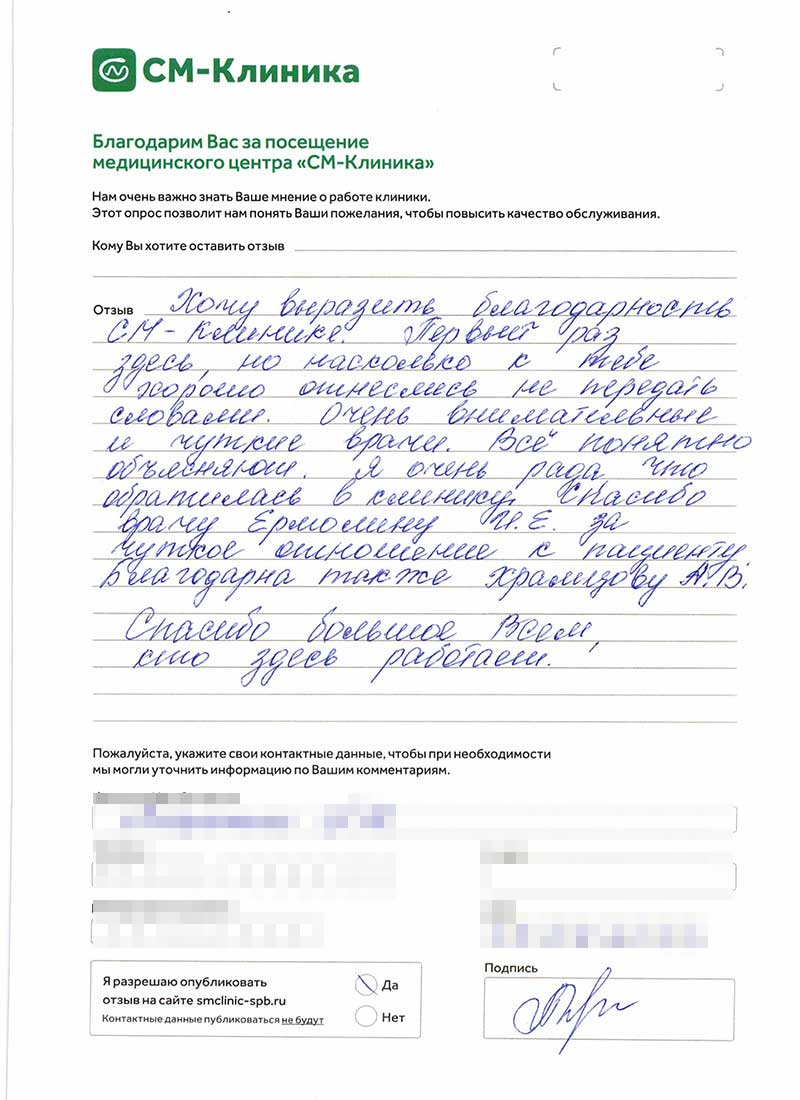 СМ-Клиника
Благодарим Вас за посещение
медицинского центра «СМ-Клиника»
Нам очень важно знать Ваше мнение о работе клиники.
Этот опрос позволит нам понять Ваши пожелания, чтобы повысить качество обслуживания.
Кому Вы хотите оставить отзыв
Отзыв Хочу выразить благодарность
СМ-Клинике. Первый раз
здесь, но насколько к тебе
хорошо отнеслись не передать
словами. Очень внимательные
и чуткие врачи. Всё понятно
объясняют. Я очень рада что
обратилась в клинику. Спасибо
врачу Ермолину И.Е. за
чуткое отношение к пациенту.
Благодарна также Храмцову А.В.
Спасибо большое Всем,
кто здесь работает.
Пожалуйста, укажите свои контактные данные, чтобы при необходимости
мы могли уточнить информацию по Вашим комментариям.
Я разрешаю опубликовать
отзыв на сайте smclinic-spb.ru
Контактные данные публиковаться не будут
Да
Нет
Подпись